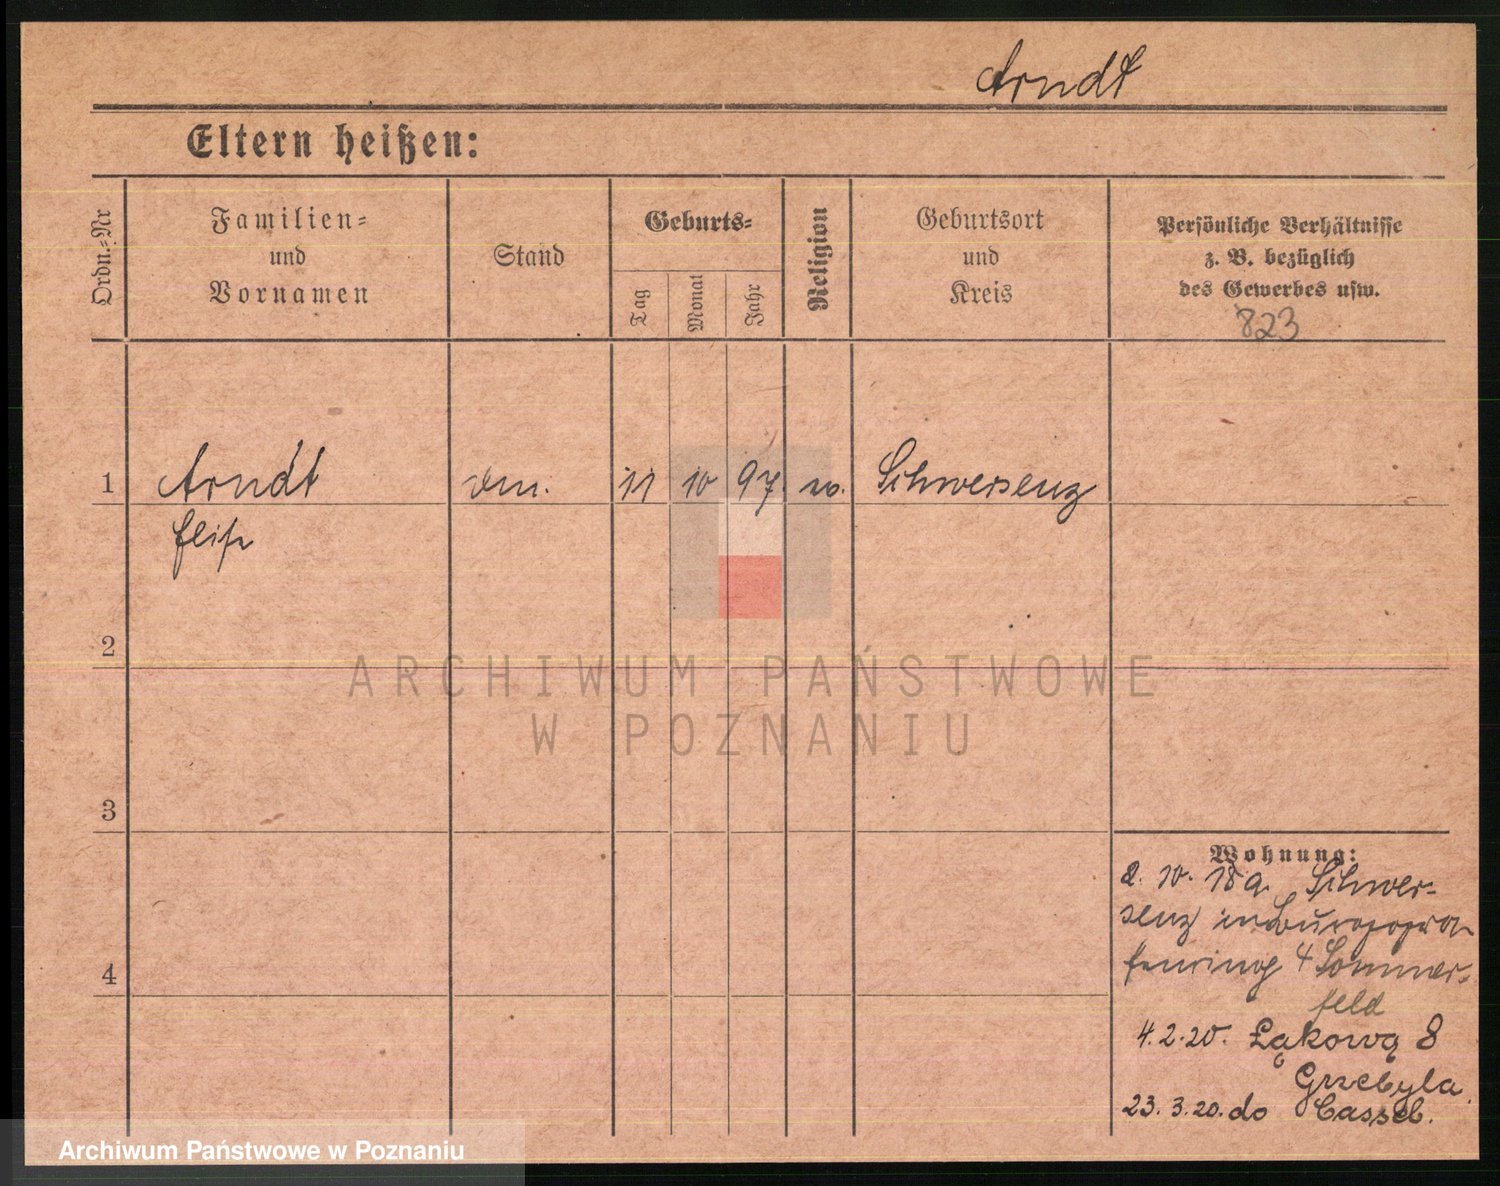 Arndt
Eltern heißen:
Ordn.=Nr
Familien=
und
Vornamen
Stand
Geburts=
Tag
Monat
Jahr
Religion
Geburtsort
und
Kreis
Persönliche Verhältnisse
z. B. bezüglich
des Gewerbes usw.
823
1 Arndt 11 10 97 Schwersenz
2
3
4
Wohnung:
2. 10. 18 a. Schwer-
senz
4 Sommer-
feld
4.2.20. Łąkowa 8
Grzebyla
23. 3.20. do Cassel.
ARCHIWUM PAŃSTWOWE
W POZNANIU
Archiwum Państwowe w Poznaniu